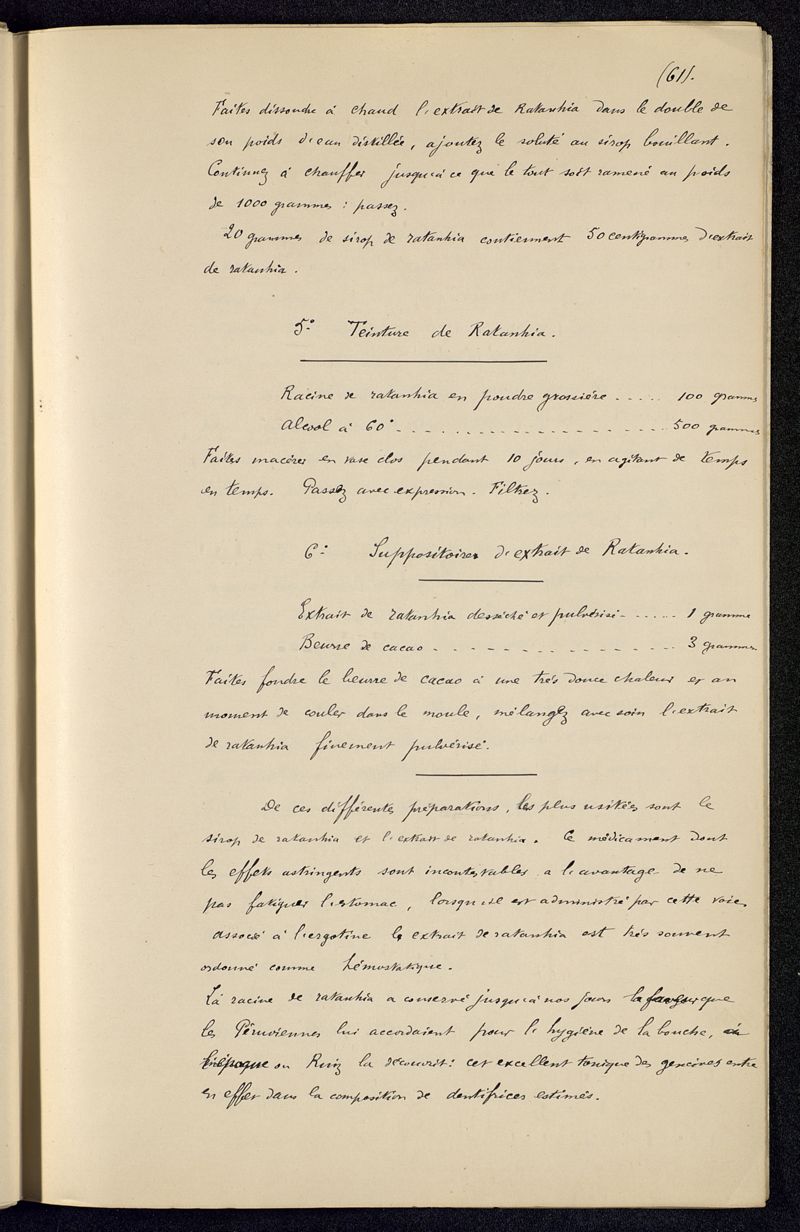 (61).
Faites dissoudre à chaud l'extrait de Ratanhia dans le double de
son poids d'eau distillée, ajoutez le soluté au sirop bouillant.
Continuez à chauffer jusqu'à ce que le tout soit ramené au poids
de 1000 grammes : passez.
20 grammes de sirop de ratanhia contiennent 50 centigrammes d'extrait
de ratanhia.
5° Teinture de Ratanhia.
Racine de ratanhia en poudre grossière ..... 100 grammes
Alcool à 60° .................... 500 grammes
Faites macérer en vase clos pendant 10 jours, en agitant de temps
en temps. Passez avec expression. Filtrez.
6° Suppositoires d'extrait de Ratanhia.
Extrait de ratanhia desséché et pulvérisé ...... 1 gramme
Beurre de cacao ................ 3 grammes
Faites fondre le beurre de cacao à une très douce chaleur et au
moment de couler dans le moule, mélangez avec soin l'extrait
de ratanhia finement pulvérisé.
De ces différentes préparations, les plus usitées sont le
sirop de ratanhia et l'extrait de ratanhia. Ce médicament dont
les effets astringents sont incontestables a l'avantage de ne
pas fatiguer l'estomac, lorsqu'il est administré par cette voie,
associé à l'ergotine l'extrait de ratanhia est très souvent
ordonné comme hémostatique.
La racine de ratanhia a conservé jusqu'à nos jours la faveur que
les Péruviennes lui accordaient pour l'hygiène de la bouche, à
l'époque où Ruiz la découvrit : cet excellent tonique des gencives entre
en effet dans la composition de dentifrices estimés.